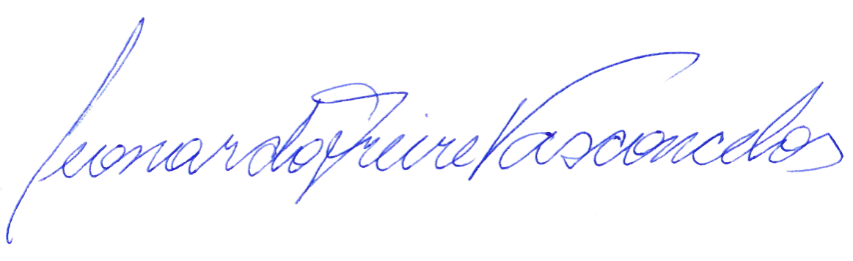 Leonardo Freire Vasconcelos